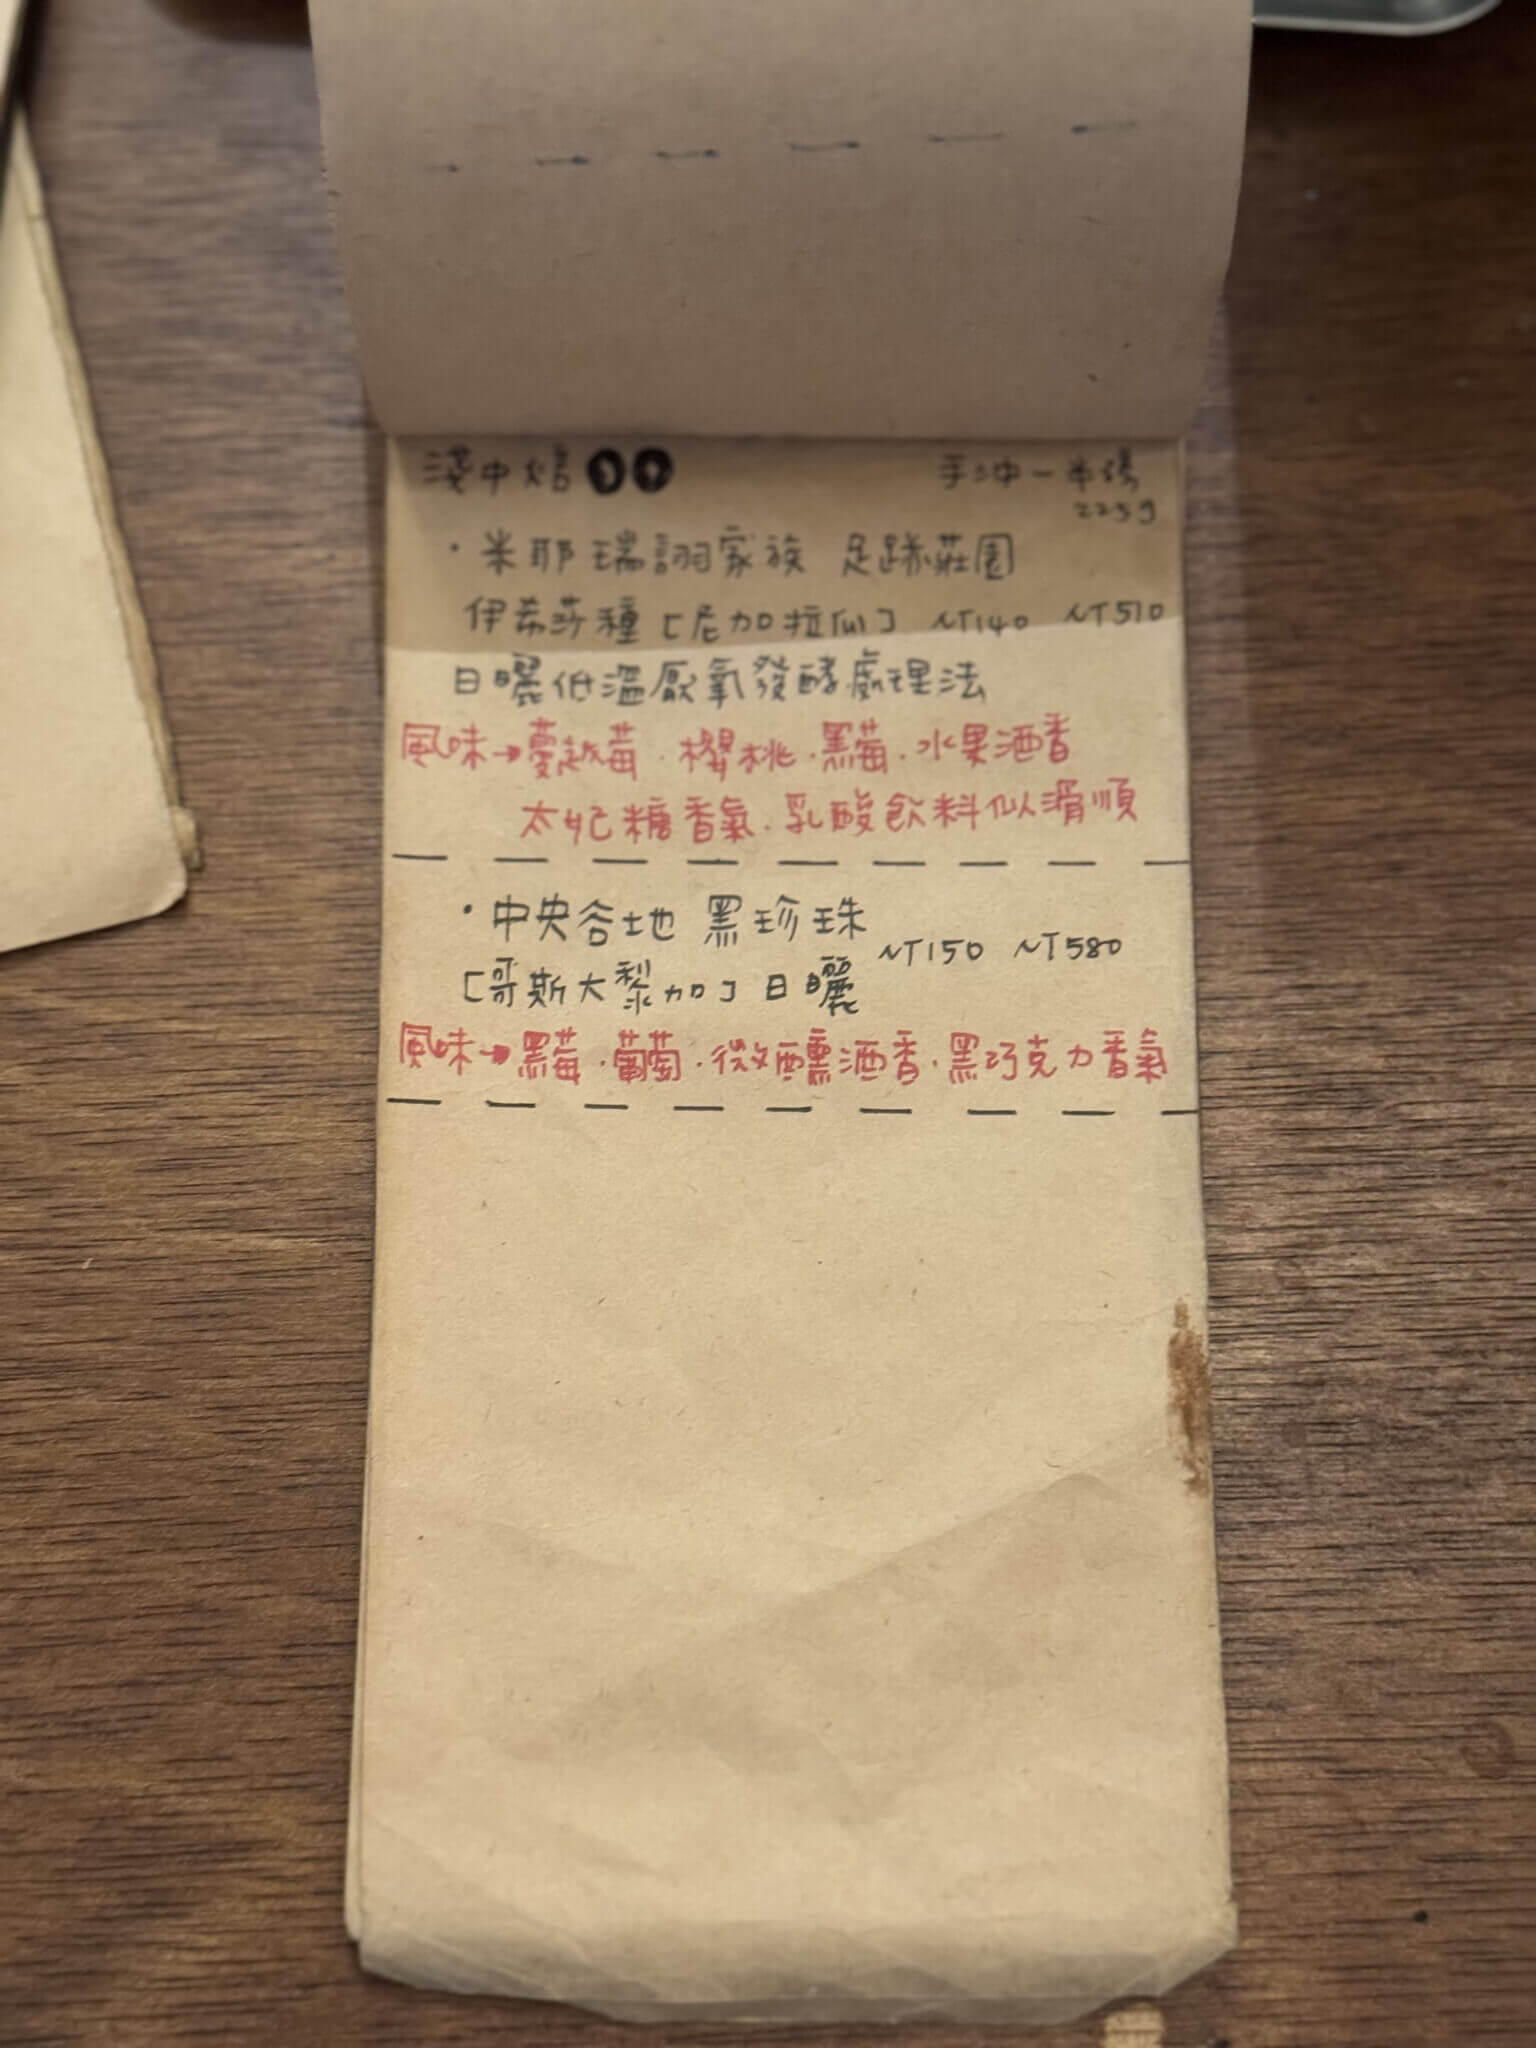 淺中焙 手沖 一半磅
225g
・米耶瑞詡家族 足跡莊園
伊希莎種 [尼加拉瓜] NT140 NT510
日曬低溫厭氧發酵處理法
風味→蔓越莓.櫻桃.黑莓.水果酒香
太妃糖香氣.乳酸飲料似滑順
・中央谷地 黑珍珠
NT150 NT580
[哥斯大黎加] 日曬
風味→黑莓.葡萄.微醺酒香.黑巧克力香氣